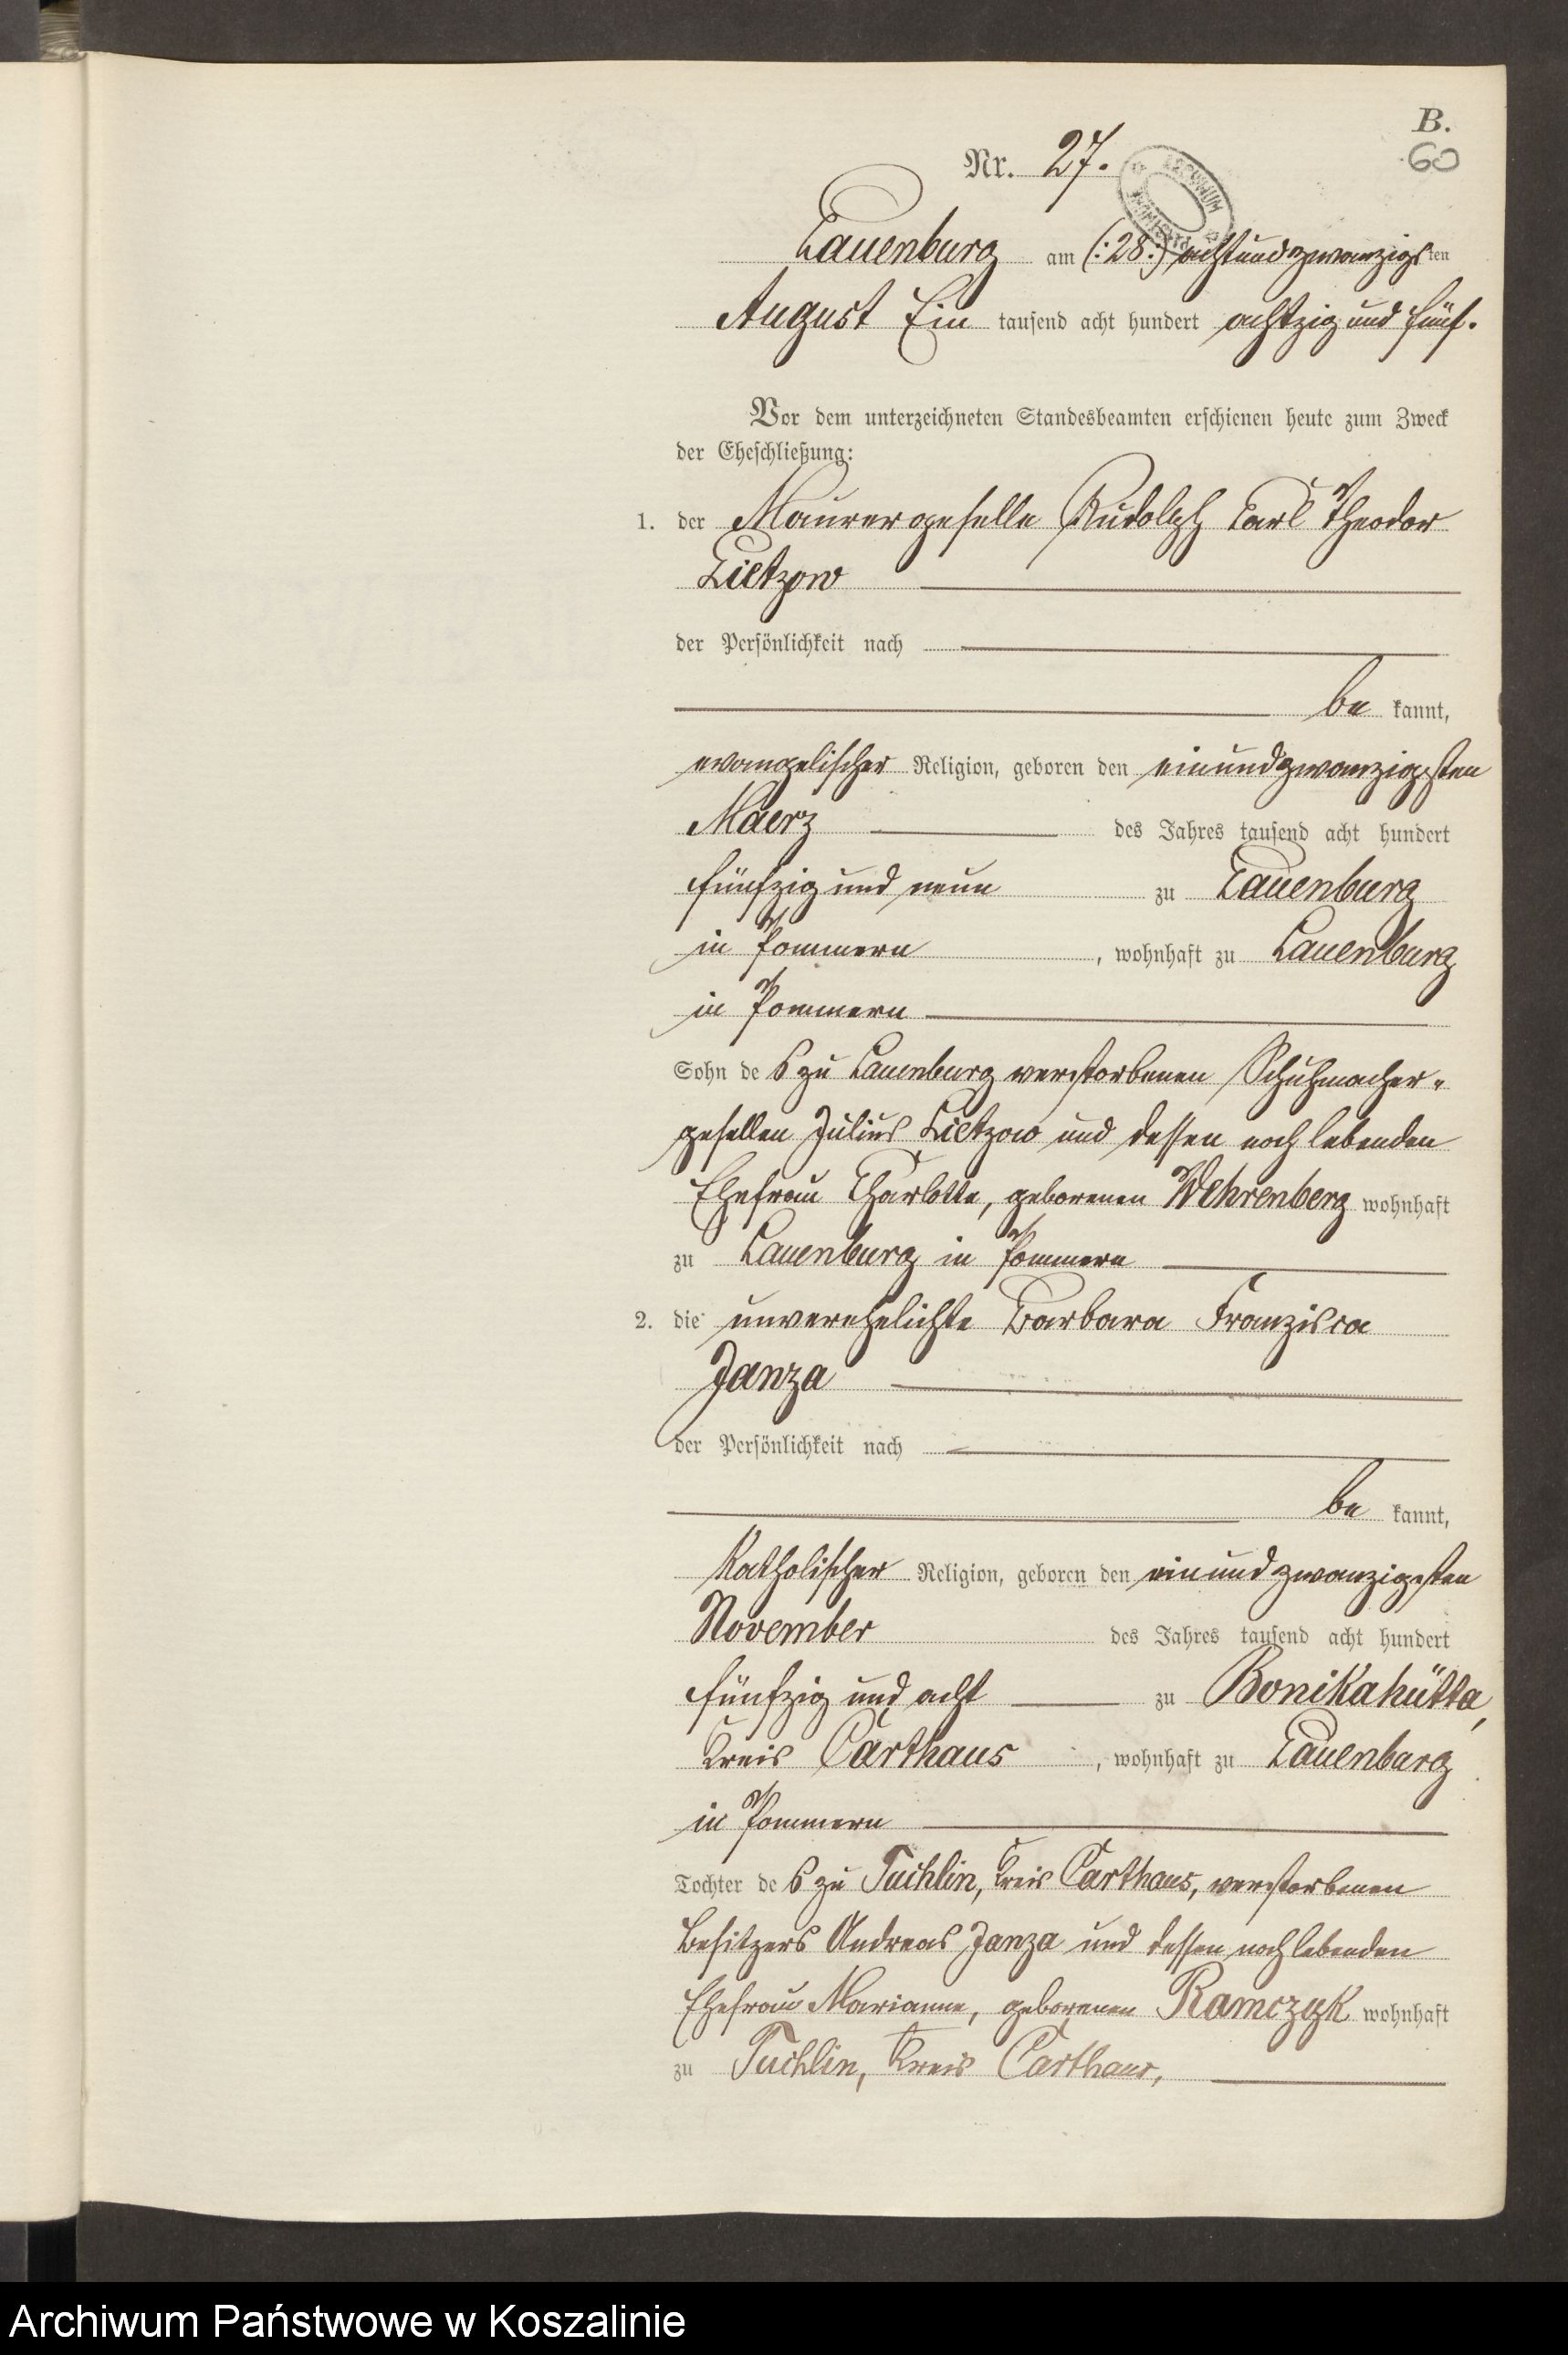 B.
60
Nr. 27.
Lauenburg am (:28:) achtundzwanzigsten
August Ein tausend acht hundert achtzig und fünf.
Vor dem unterzeichneten Standesbeamten erschienen heute zum Zweck
der Eheschließung:
1. der Maurergeselle Rudolph Carl Theodor
Lietzow
der Persönlichkeit nach
be kannt,
evangelischer Religion, geboren den einundzwanzigsten
Maerz des Jahres tausend acht hundert
fünfzig und neun zu Lauenburg
in Pommern, wohnhaft zu Lauenburg
in Pommern
Sohn des zu Lauenburg verstorbenen Schuhmacher-
gesellen Julius Lietzow und dessen noch lebenden
Ehefrau Charlotte, geborenen Wehrenberg wohnhaft
zu Lauenburg in Pommern
2. die unverehelichte Barbara Franzisca
Janza
der Persönlichkeit nach
be kannt,
Katholischer Religion, geboren den einundzwanzigsten
November des Jahres tausend acht hundert
fünfzig und acht zu Bonikahütta,
Kreis Carthaus, wohnhaft zu Lauenburg
in Pommern
Tochter des zu Tuchlin, Kreis Carthaus, verstorbenen
Besitzers Andreas Janza und dessen noch lebenden
Ehefrau Marianne, geborenen Ramczyk wohnhaft
zu Tuchlin, Kreis Carthaus,
Archiwum Państwowe w Koszalinie